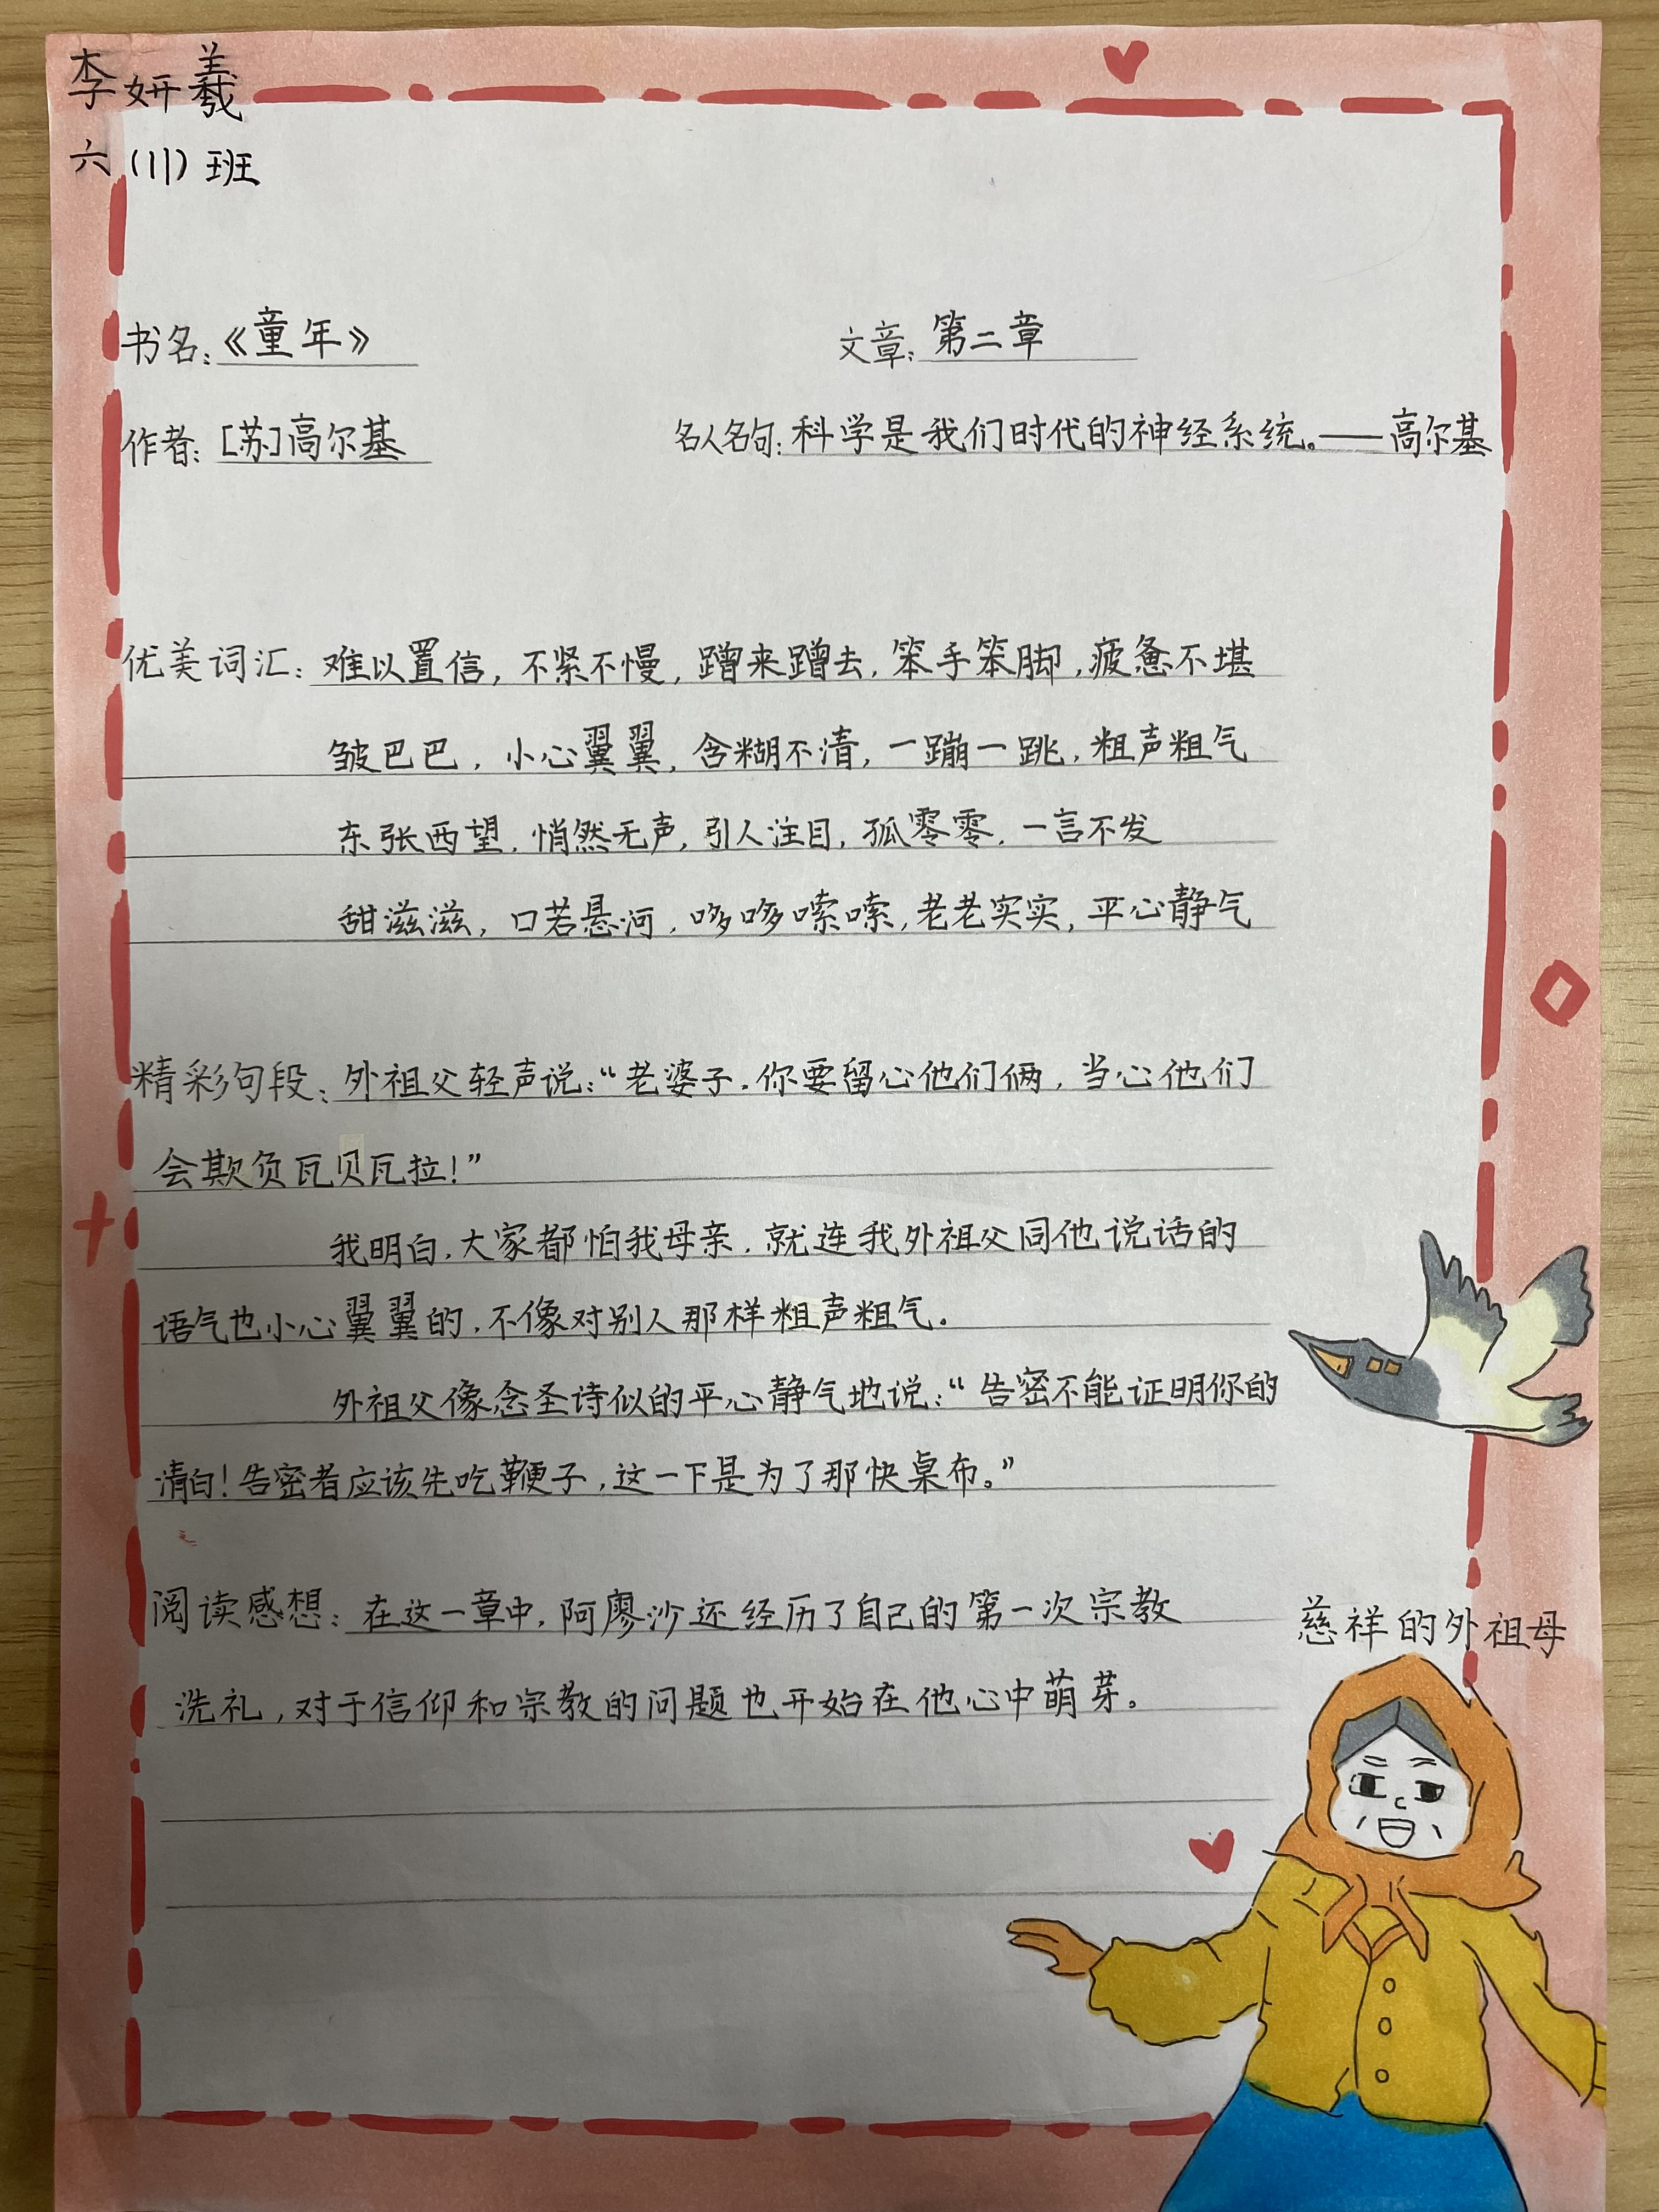 李妍羲
六(11)班
书名:《童年》 文章:第二章
作者:[苏]高尔基 名人名句:科学是我们时代的神经系统。——高尔基
优美词汇:难以置信,不紧不慢,蹭来蹭去,笨手笨脚,疲惫不堪
皱巴巴,小心翼翼,含糊不清,一蹦一跳,粗声粗气
东张西望,悄然无声,引人注目,孤零零,一言不发
甜滋滋,口若悬河,哆哆嗦嗦,老老实实,平心静气
精彩句段:外祖父轻声说:“老婆子,你要留心他们俩,当心他们
会欺负瓦贝瓦拉!”
我明白,大家都怕我母亲,就连我外祖父同他说话的
语气也小心翼翼的,不像对别人那样粗声粗气。
外祖父像念圣诗似的平心静气地说:“告密不能证明你的
清白!告密者应该先吃鞭子,这一下是为了那快桌布。”
阅读感想:在这一章中,阿廖沙还经历了自己的第一次宗教
洗礼,对于信仰和宗教的问题也开始在他心中萌芽。
慈祥的外祖母